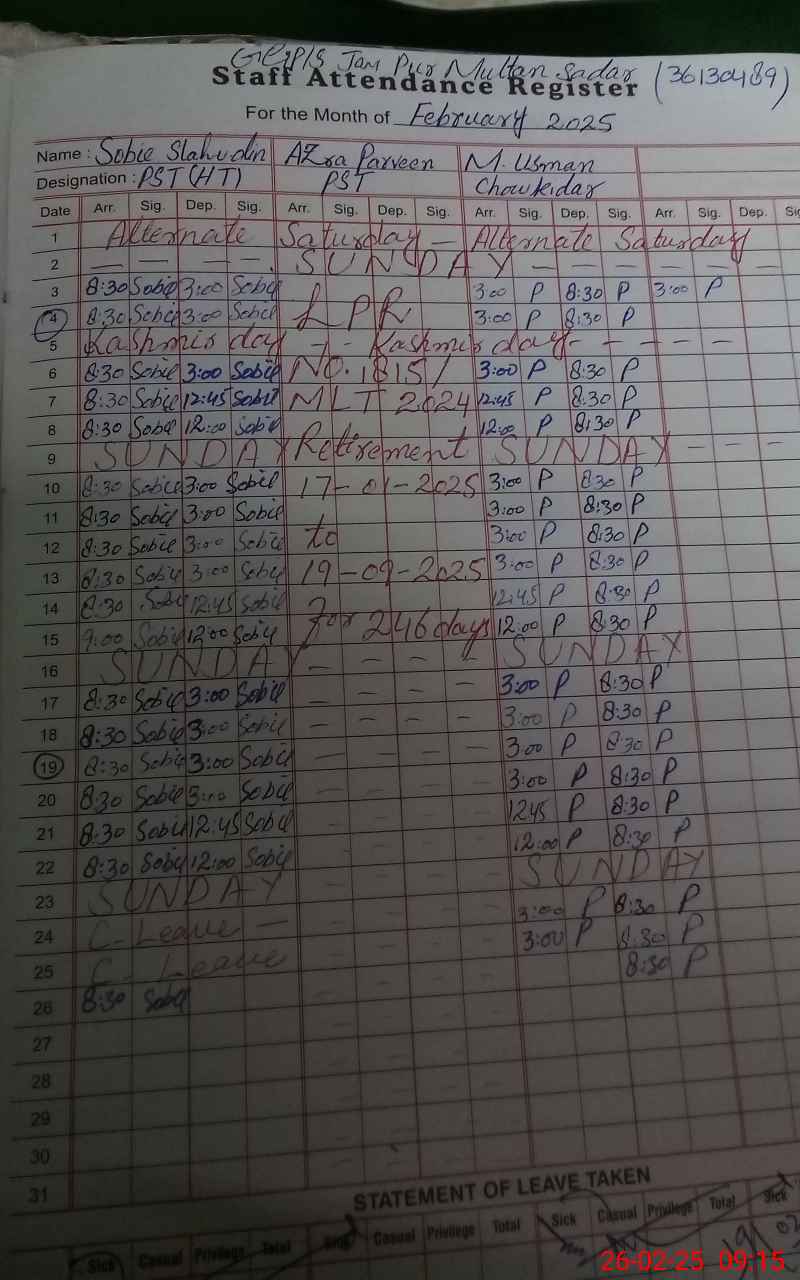 GGPS Jam Pur Multan Sadar (36130489)
Staff Attendance Register
For the Month of February 2025
Name : Sobie Slahudin AZra Parveen M. Usman
Designation : PST (HT) PST Chowkidar
Date Arr. Sig. Dep. Sig. Arr. Sig. Dep. Sig. Arr. Sig. Dep. Sig. Arr. Sig. Dep.
1 Alternate Saturday - Alternate Saturday
2 - - - - SUNDAY - - - - -
3 8:30 Sobie 3:00 Sobie 3:00 P 8:30 P 3:00 P
4 8:30 Sobie 3:00 Sobie LPR 3:00 P 8:30 P
5 Kashmir day - - Kashmir day - - - - -
6 8:30 Sobie 3:00 Sobie NO. 1815/ 3:00 P 8:30 P
7 8:30 Sobie 12:45 Sobie MLT 2024 12:45 P 8:30 P
8 8:30 Sobie 12:00 Sobie 12:00 P 8:30 P
9 SUNDAY Retirement SUNDAY - - -
10 8:30 Sobie 3:00 Sobie 17-01-2025 3:00 P 8:30 P
11 8:30 Sobie 3:00 Sobie 3:00 P 8:30 P
12 8:30 Sobie 3:00 Sobie to 3:00 P 8:30 P
13 8:30 Sobie 3:00 Sobie 19-09-2025 3:00 P 8:30 P
14 8:30 Sobie 12:45 Sobie 12:45 P 8:30 P
15 9:00 Sobie 12:00 Sobie For 246 days 12:00 P 8:30 P
16 SUNDAY - - - - SUNDAY
17 8:30 Sobie 3:00 Sobie - - - - 3:00 P 8:30 P
18 8:30 Sobie 3:00 Sobie - - - - 3:00 P 8:30 P
19 8:30 Sobie 3:00 Sobie - - - - 3:00 P 8:30 P
20 8:30 Sobie 3:00 Sobie 3:00 P 8:30 P
21 8:30 Sobie 12:45 Sobie 12:45 P 8:30 P
22 8:30 Sobie 12:00 Sobie 12:00 P 8:30 P
23 SUNDAY SUNDAY
24 C-Leave - 3:00 P 8:30 P
25 C-Leave 3:00 P 8:30 P
26 8:30 Sobie 8:30 P
27
28
29
30
31
STATEMENT OF LEAVE TAKEN
Sick Casual Privilege Total Sick Casual Privilege Total Sick Casual Privilege Total Sick
26-02-25 09:15